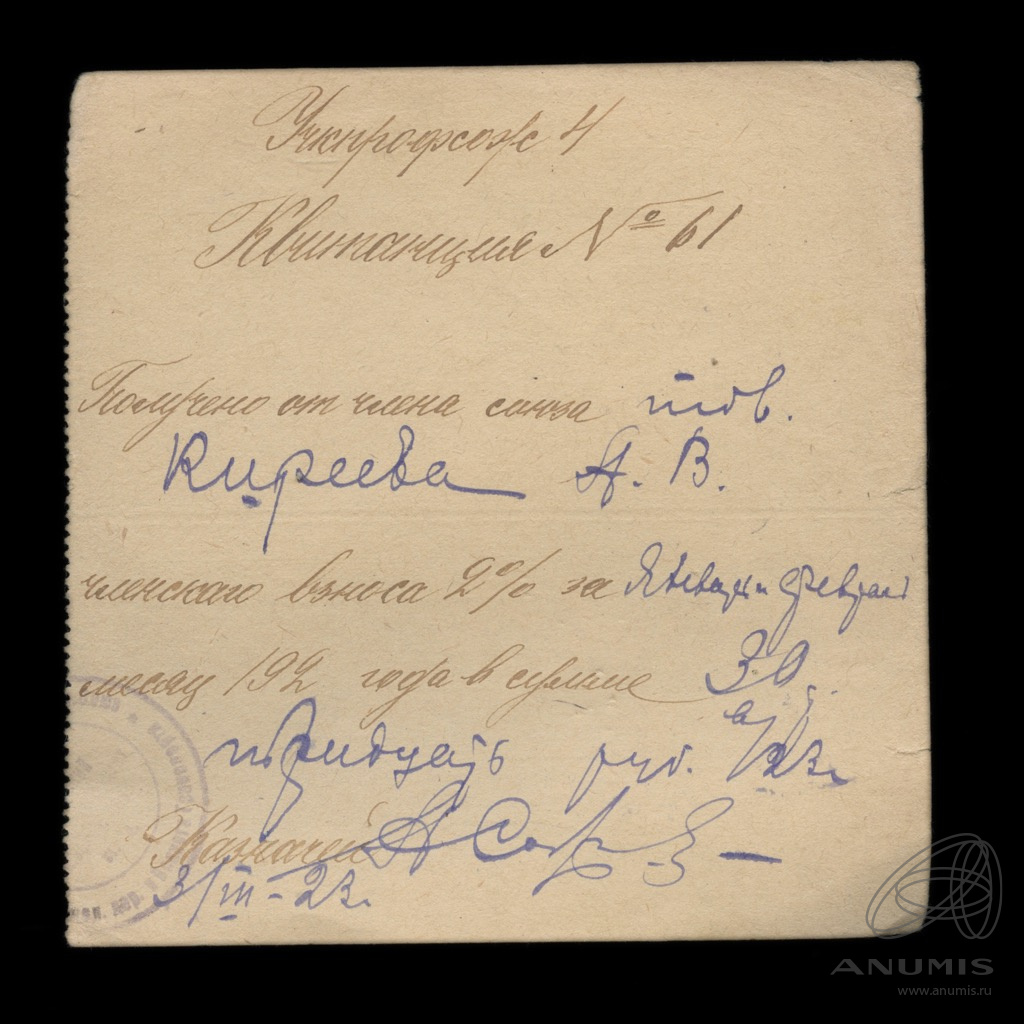 Учкпрофсож 4
Квитанция № 61
Получено от члена союза тов.
Киреева А. В.
членскаго взноса 2% за Январь и Феврал
месяц 192 года в сумме 30
тридцать руб.
Казначей
3/III-23.
ANUMIS
www.anumis.ru